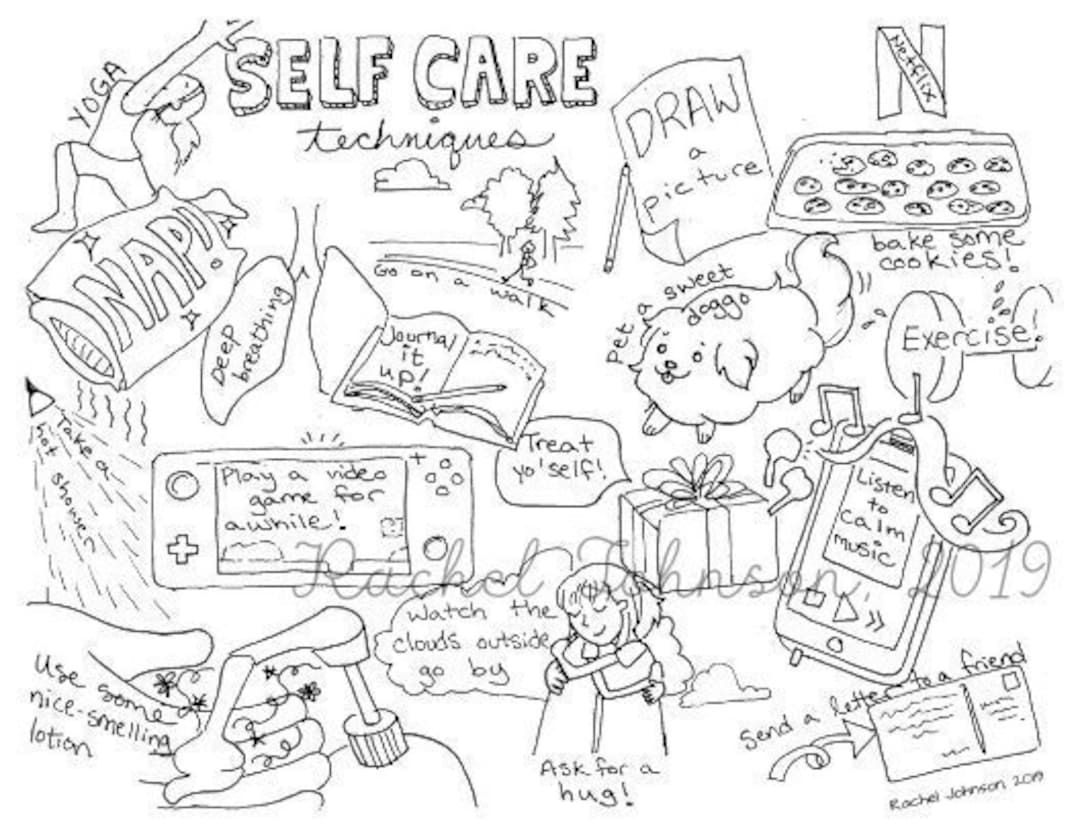 SELF CARE
techniques
YOGA
DRAW
a
picture!
Netflix
bake some
cookies!
NAP!
Deep
breathing
Go on a walk
Journal
it
up!
Pet a sweet
doggo
Exercise!
Take a
hot shower
Play a video
game for
awhile!
Treat
yo'self!
Listen
to
calm
music
Rachel Johnson, 2019
Watch the
clouds outside
go by
Use some
nice-smelling
lotion
Ask for a
hug!
Send a letter to a friend
Rachel Johnson, 2019